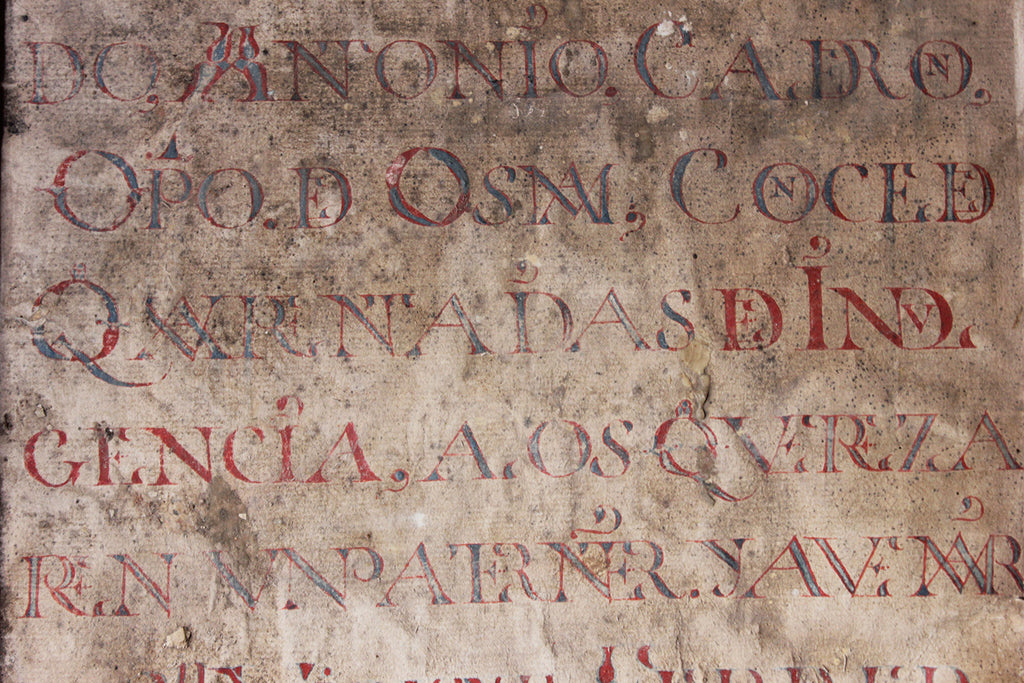 DO, ANTONIO. CALDERON,
OPO. DE OSMA, CONCEDE
QVARENTA DIAS DE INDVL
GENCIA, A. OS QVE REZA
REN VN PATER NER. Y AVE MAR